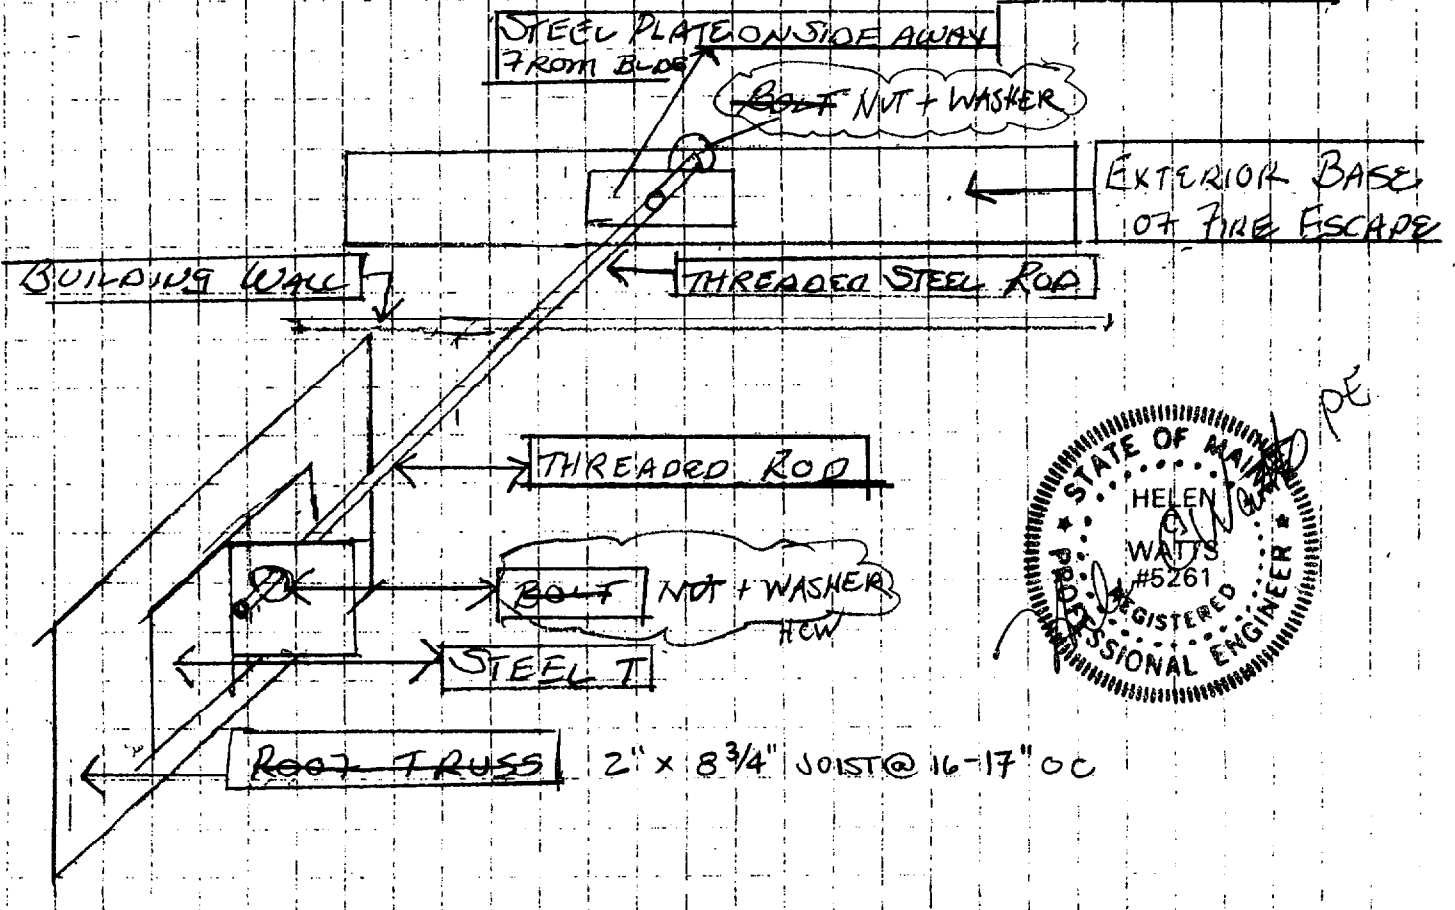 STEEL PLATE ON SIDE AWAY
FROM BLDG
BOLT NUT + WASHER
EXTERIOR BASE
OF FIRE ESCAPE
BUILDING WALL
THREADED STEEL ROD
THREADED ROD
BOLT NUT + WASHER
HCW
STEEL T
ROOF TRUSS 2" x 8 3/4" JOIST @ 16-17" OC
PE
STATE OF MAINE
HELEN
C.
WATTS
#5261
REGISTERED
PROFESSIONAL ENGINEER